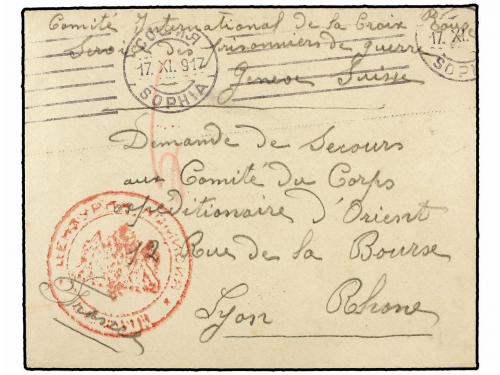 Comité International de la Croix Rouge
Service des prisonniers de guerre
Geneve Suisse
СОФИЯ
17. XI. 917
SOPHIA
17. XI.
SOPHIA
Demande de Secours
aux Comité du Corps
expéditionaire d'Orient
12 Rue de la Bourse
Lyon Rhone
France